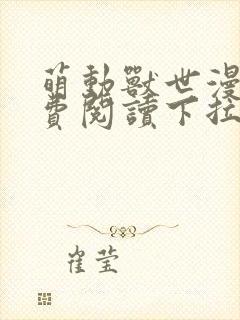 萌動獸世漫
費閱讀下拉
崔莹